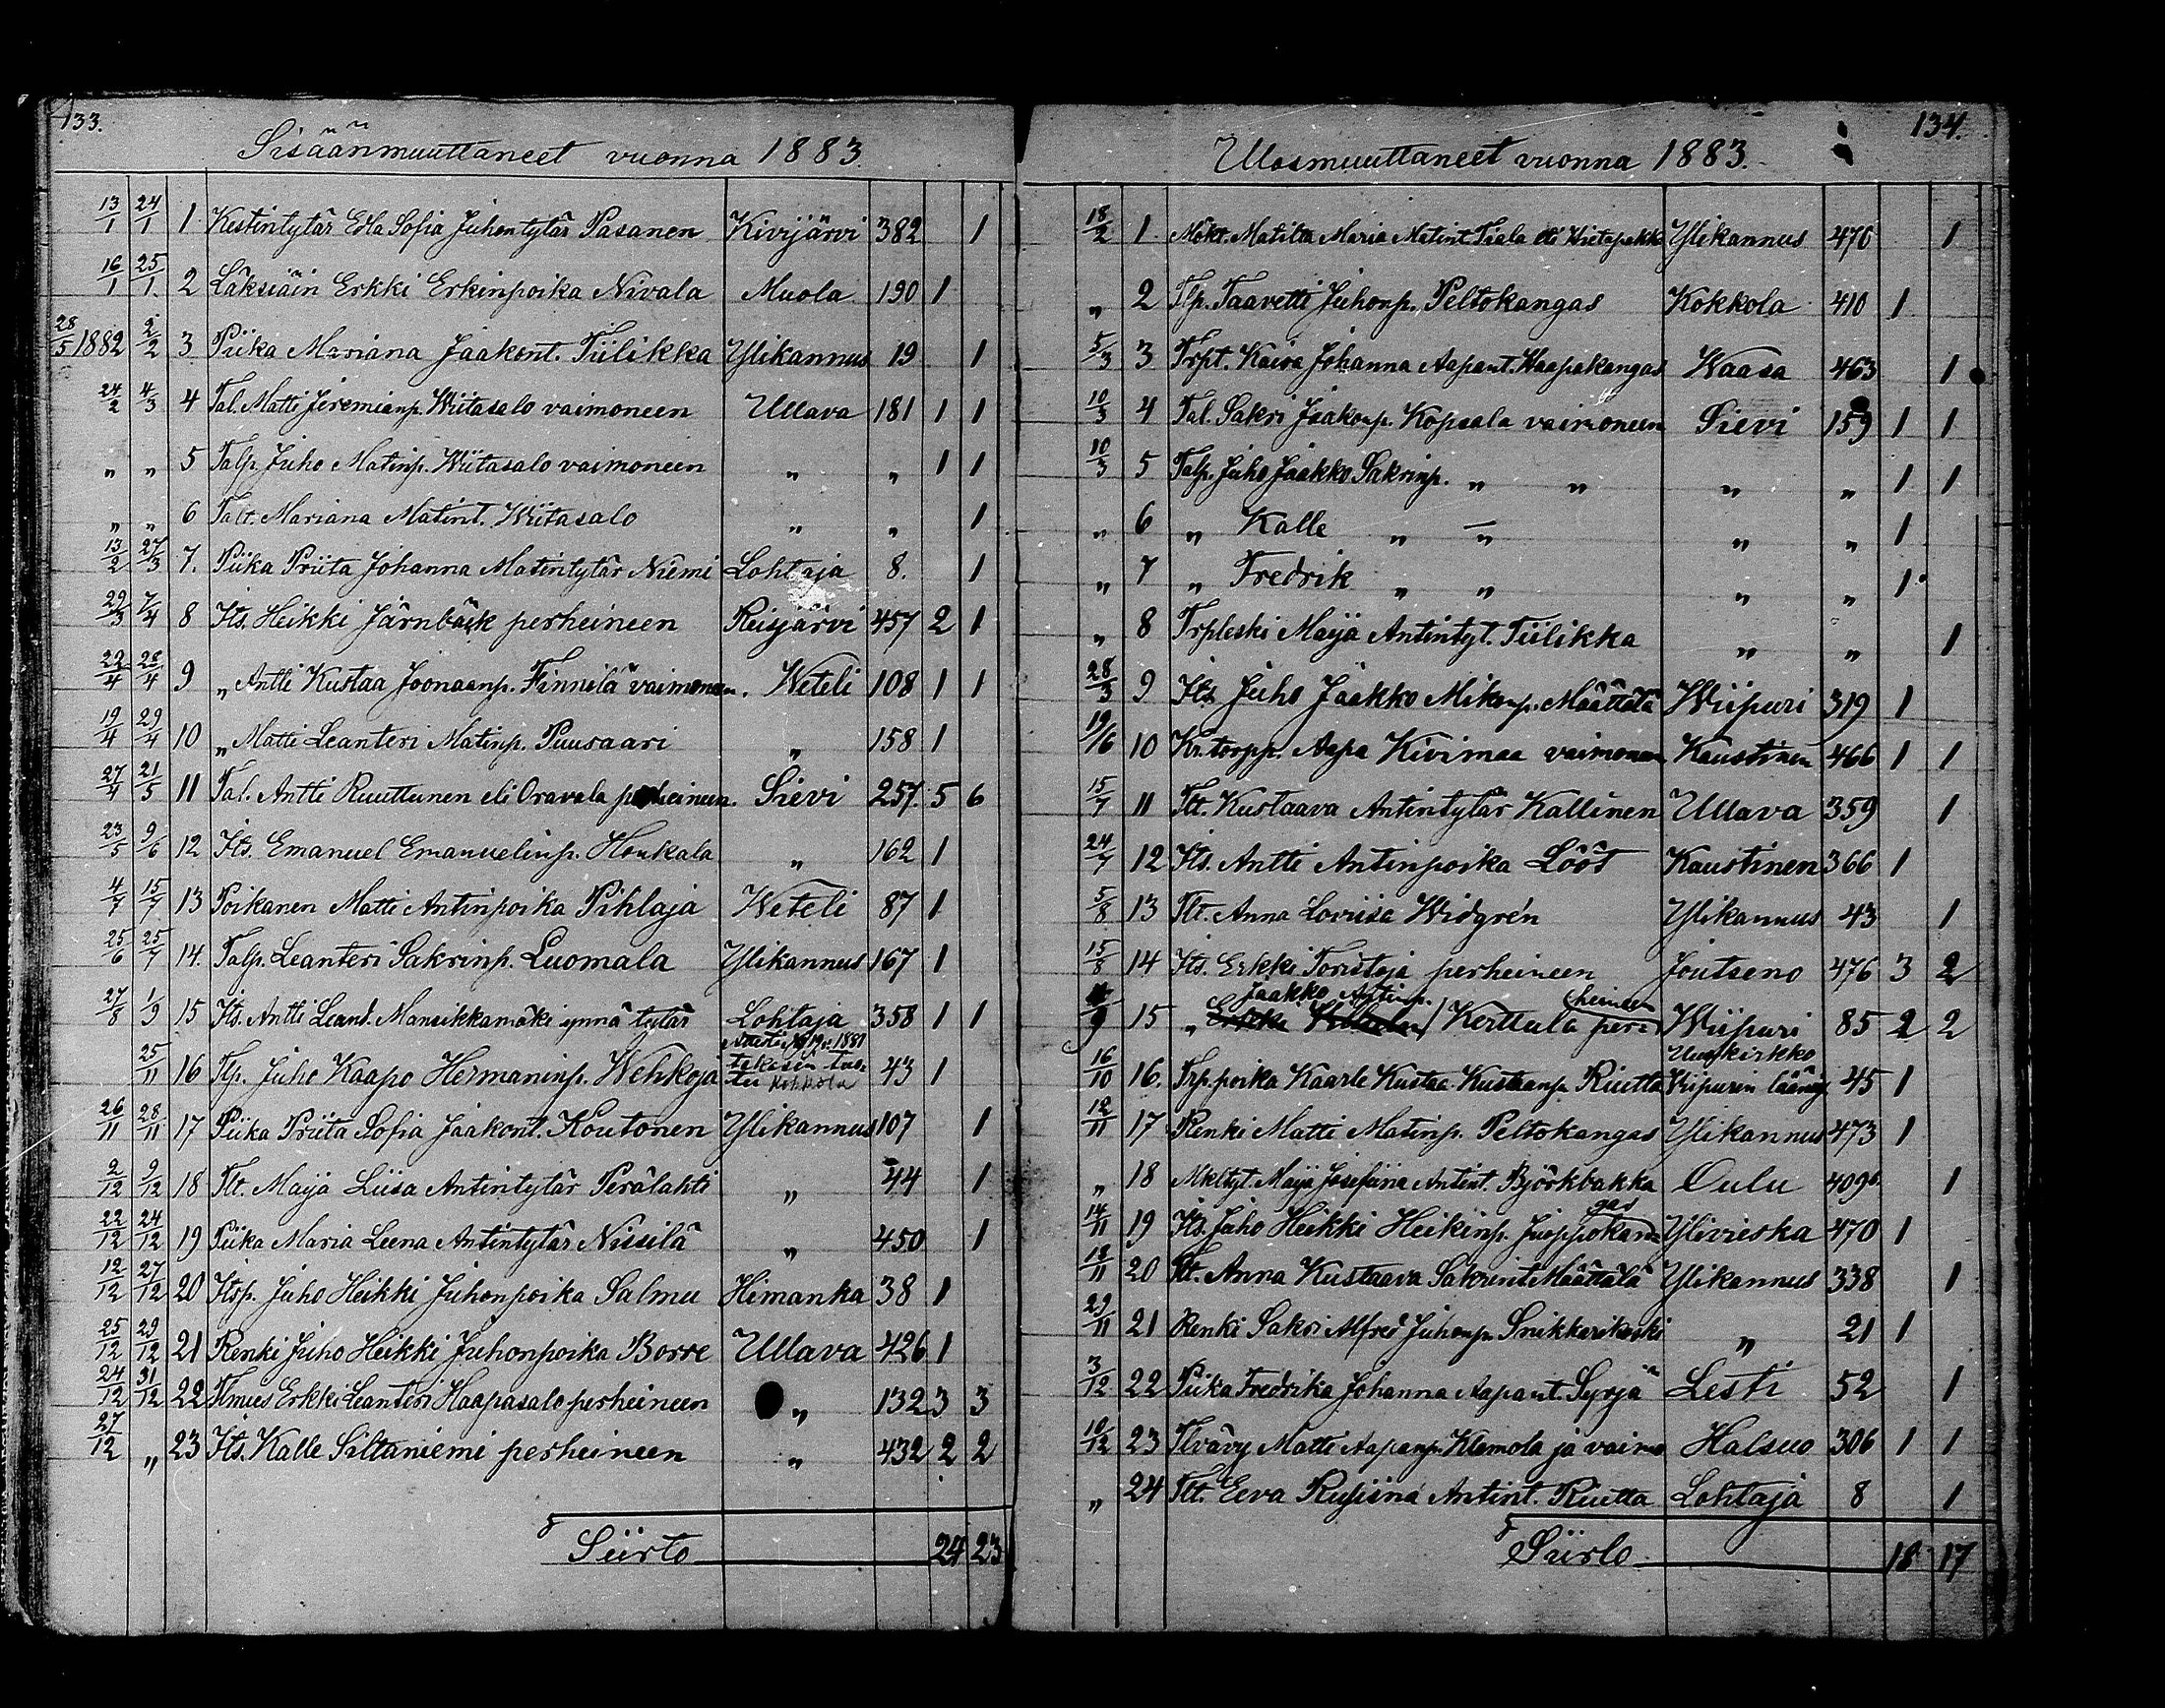 133.
Sisäänmuuttaneet vuonna 1883.
13/1 24/1 1 Kestintytär Edla Sofia Juhontytär Pasanen Kivijärvi 382 1
16/1 25/1 2 Läksiäin Erkki Erkinpoika Nivala Muola 190 1
28/5 1882 2/2 3 Piika Mariana Jaakont. Tiilikka Ylikannus 19 1
24/2 4/3 4 Tal. Matti Jeremianp. Wiitasalo vaimoneen Ullava 181 1 1
„ „ 5 Talp. Juho Matinp. Wiitasalo vaimoneen „ „ 1 1
„ „ 6 Talt. Mariana Matint. Wiitasalo „ „ 1
13/2 27/3 7. Piika Priita Johanna Matintytär Niemi Lohtaja 8. 1
29/3 7/4 8 Its. Heikki Järnbäck perheineen Reisjärvi 457 2 1
22/4 28/4 9 „ Antti Kustaa Joonaanp. Finnilä vaimoneen. Weteli 108 1 1
19/4 29/4 10 „ Matti Leanteri Matinp. Puusaari „ 158 1
27/4 21/5 11 Tal. Antti Ruuttunen eli Oravala perheineen. Sievi 257. 5 6
23/5 9/6 12 Its. Emanuel Emanuelinp. Honkala „ 162 1
4/7 15/7 13 Poikanen Matti Antinpoika Pihlaja Weteli 87 1
25/6 25/7 14. Talp. Leanteri Sakrinp. Luomala Ylikannus 167 1
27/8 1/9 15 Its. Antti Leand. Mansikkamäki ynnä tytär Lohtaja 358 1 1
25/11 16 Tlp. Juho Kaapo Hermaninp. Wehkoja Kokkola 43 1
26/11 28/11 17 Piika Priita Sofia Jaakont. Koutonen Ylikannus 107 1
2/12 9/12 18 Tlt. Maija Liisa Antintytär Perälahti „ 44 1
22/12 24/12 19 Piika Maria Leena Antintytär Nissilä „ 450 1
12/12 27/12 20 Itsp. Juho Heikki Juhonpoika Salmu Himanka 38 1
25/12 29/12 21 Renki Juho Heikki Juhonpoika Borre Ullava 426 1
24/12 31/12 22 Erkki Leanteri Haapasalo perheineen „ 132 3 3
27/12 „ 23 Its. Kalle Siltaniemi perheineen „ 432 2 2
Siirto 24 23
134.
Ulosmuuttaneet vuonna 1883.
18/2 1 Mökt. Matilta Maria Matint. Taala eli Wietapakka Ylikannus 470 1
„ 2 Tlp. Taavetti Juhonp. Peltokangas Kokkola 410 1
5/3 3 Trpt. Kaisa Johanna Aapant. Haapakangas Waasa 463 1
10/3 4 Tal. Sakri Jaakonp. Kopsala vaimoneen Sievi 159 1 1
10/3 5 Talp. Juho Jaakko Sakrinp. „ „ „ „ 1 1
„ 6 „ Kalle „ „ „ „ 1
„ 7 „ Fredrik „ „ „ „ 1
„ 8 Trpleski Maija Antintyt. Tiilikka „ „ 1
28/3 9 Its Juho Jaakko Mikonp. Määttälä Wiipuri 319 1
19/6 10 Kr. torpp. Aapa Kivimaa vaimoneen Kaustinen 466 1 1
15/7 11 Tlt. Kustaava Antintytär Kallinen Ullava 359 1
24/7 12 Its. Antti Antinpoika Lööt Kaustinen 366 1
5/8 13 Tlt. Anna Loviisa Widgrén Ylikannus 43 1
15/8 14 Its. Erkki Toristoja perheineen Joutseno 476 3 2
15 „ Jaakko Antinp. Kerttula perheineen Wiipuri 85 2 2
16/10 16. Trp. poika Kaarle Kustaa Kustaanp. Riutta Uusikirkko Wiipurin lääniä 45 1
12/11 17 Renki Matti Matinp. Peltokangas Ylikannus 473 1
„ 18 Mkltyt. Maija Josefiina Antint. Björkbakka Oulu 409 1
14/11 19 Its. Juho Heikki Heikinp. Juoppokangas Ylivieska 470 1
18/11 20 Tlt. Anna Kustaava Sakrint. Määttälä Ylikannus 338 1
29/11 21 Renki Sakri Alfred Juhonp. Snikkerikoski „ 21 1
3/12 22 Piika Fredrika Johanna Aapant. Syrjä Lesti 52 1
10/12 23 Tlvävy Matti Aapanp. Klemola ja vaimo Halsuo 306 1 1
„ 24 Tlt. Eeva Rufiina Antint. Riutta Lohtaja 8 1
Siirto 18 17